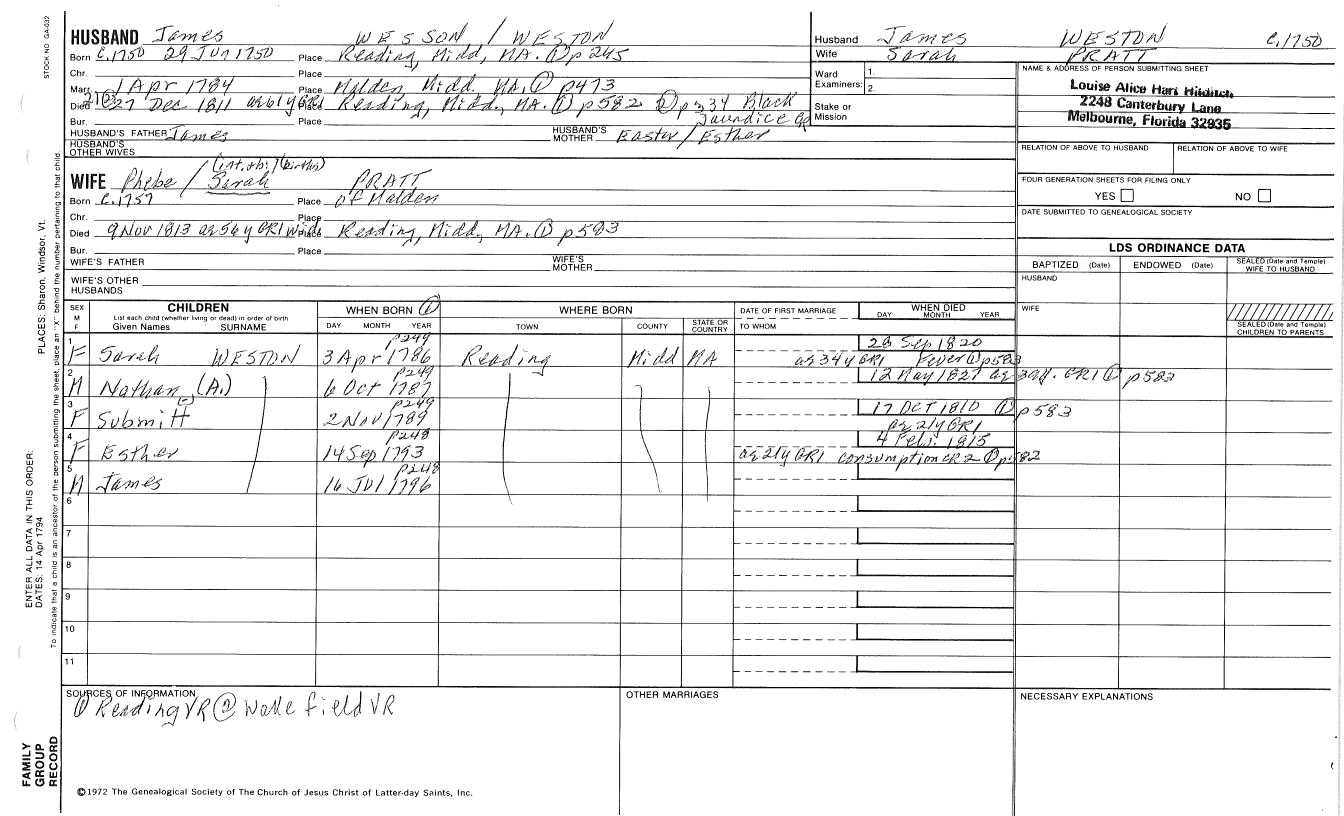 STOCK NO. GA-032
HUSBAND James WESSON / WESTON
Born c.1750 29 Jun 1750 Place Reading, Midd, MA. ① p245
Chr. Place
Marr. 1 Apr 1784 Place Malden Midd. MA. ① p473
Died 27 Dec 1811 ae 61y GR1 Place Reading, Midd, MA. ① p582 ② p234 Black
Bur. Place Jaundice
HUSBAND'S FATHER James HUSBAND'S MOTHER Easter / Esther
HUSBAND'S OTHER WIVES
(int. & b.) (births)
WIFE Phebe / Sarah PRATT
Born c.1757 Place of Malden
Chr. Place
Died 9 Nov 1813 ae 56y GR1 wid. Place Reading, Midd, MA. ① p583
Bur. Place
WIFE'S FATHER WIFE'S MOTHER
WIFE'S OTHER HUSBANDS
Husband James WESTON c.1750
Wife Sarah PRATT
Ward Examiners: 1.
2.
Stake or Mission
NAME & ADDRESS OF PERSON SUBMITTING SHEET
Louise Alice Hart
2248 Canterbury Lane
Melbourne, Florida 32935
RELATION OF ABOVE TO HUSBAND RELATION OF ABOVE TO WIFE
FOUR GENERATION SHEETS FOR FILING ONLY
YES NO
DATE SUBMITTED TO GENEALOGICAL SOCIETY
LDS ORDINANCE DATA
BAPTIZED (Date) ENDOWED (Date) SEALED (Date and Temple) WIFE TO HUSBAND
HUSBAND
WIFE
SEALED (Date and Temple) CHILDREN TO PARENTS
SEX M F CHILDREN WHEN BORN ① WHERE BORN DATE OF FIRST MARRIAGE WHEN DIED
List each child (whether living or dead) in order of birth
Given Names SURNAME DAY MONTH YEAR TOWN COUNTY STATE OR COUNTRY TO WHOM DAY MONTH YEAR
1 p249 28 Sep 1820
F Sarah WESTON 3 Apr 1786 Reading Midd MA ae 34y GR1 Fever ① p583
2 p249 12 May 1827 ae 39y. GR1 ① p583
M Nathan (A.) 6 Oct 1787
3 p249 17 OCT 1810 ① p583
F Submitt 2 Nov 1789 ae 21y GR1
4 p248 4 Feb. 1815
F Esther 14 Sep 1793 ae 21y GR1 consumption CR2 ① p582
5 p248
M James 16 JUl 1796
6
7
8
9
10
11
SOURCES OF INFORMATION OTHER MARRIAGES NECESSARY EXPLANATIONS
① Reading VR ② Wakefield VR
©1972 The Genealogical Society of The Church of Jesus Christ of Latter-day Saints, Inc.
ENTER ALL DATA IN THIS ORDER:
DATES: 14 Apr 1794 PLACES: Sharon, Windsor, Vt.
To indicate that a child is an ancestor of the person submitting the sheet, place an "X" behind the number pertaining to that child.
FAMILY GROUP RECORD